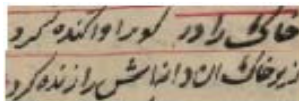 خاک را در گور او اکنده کرد
زیر خاک ان دانهاش را زنده کرد